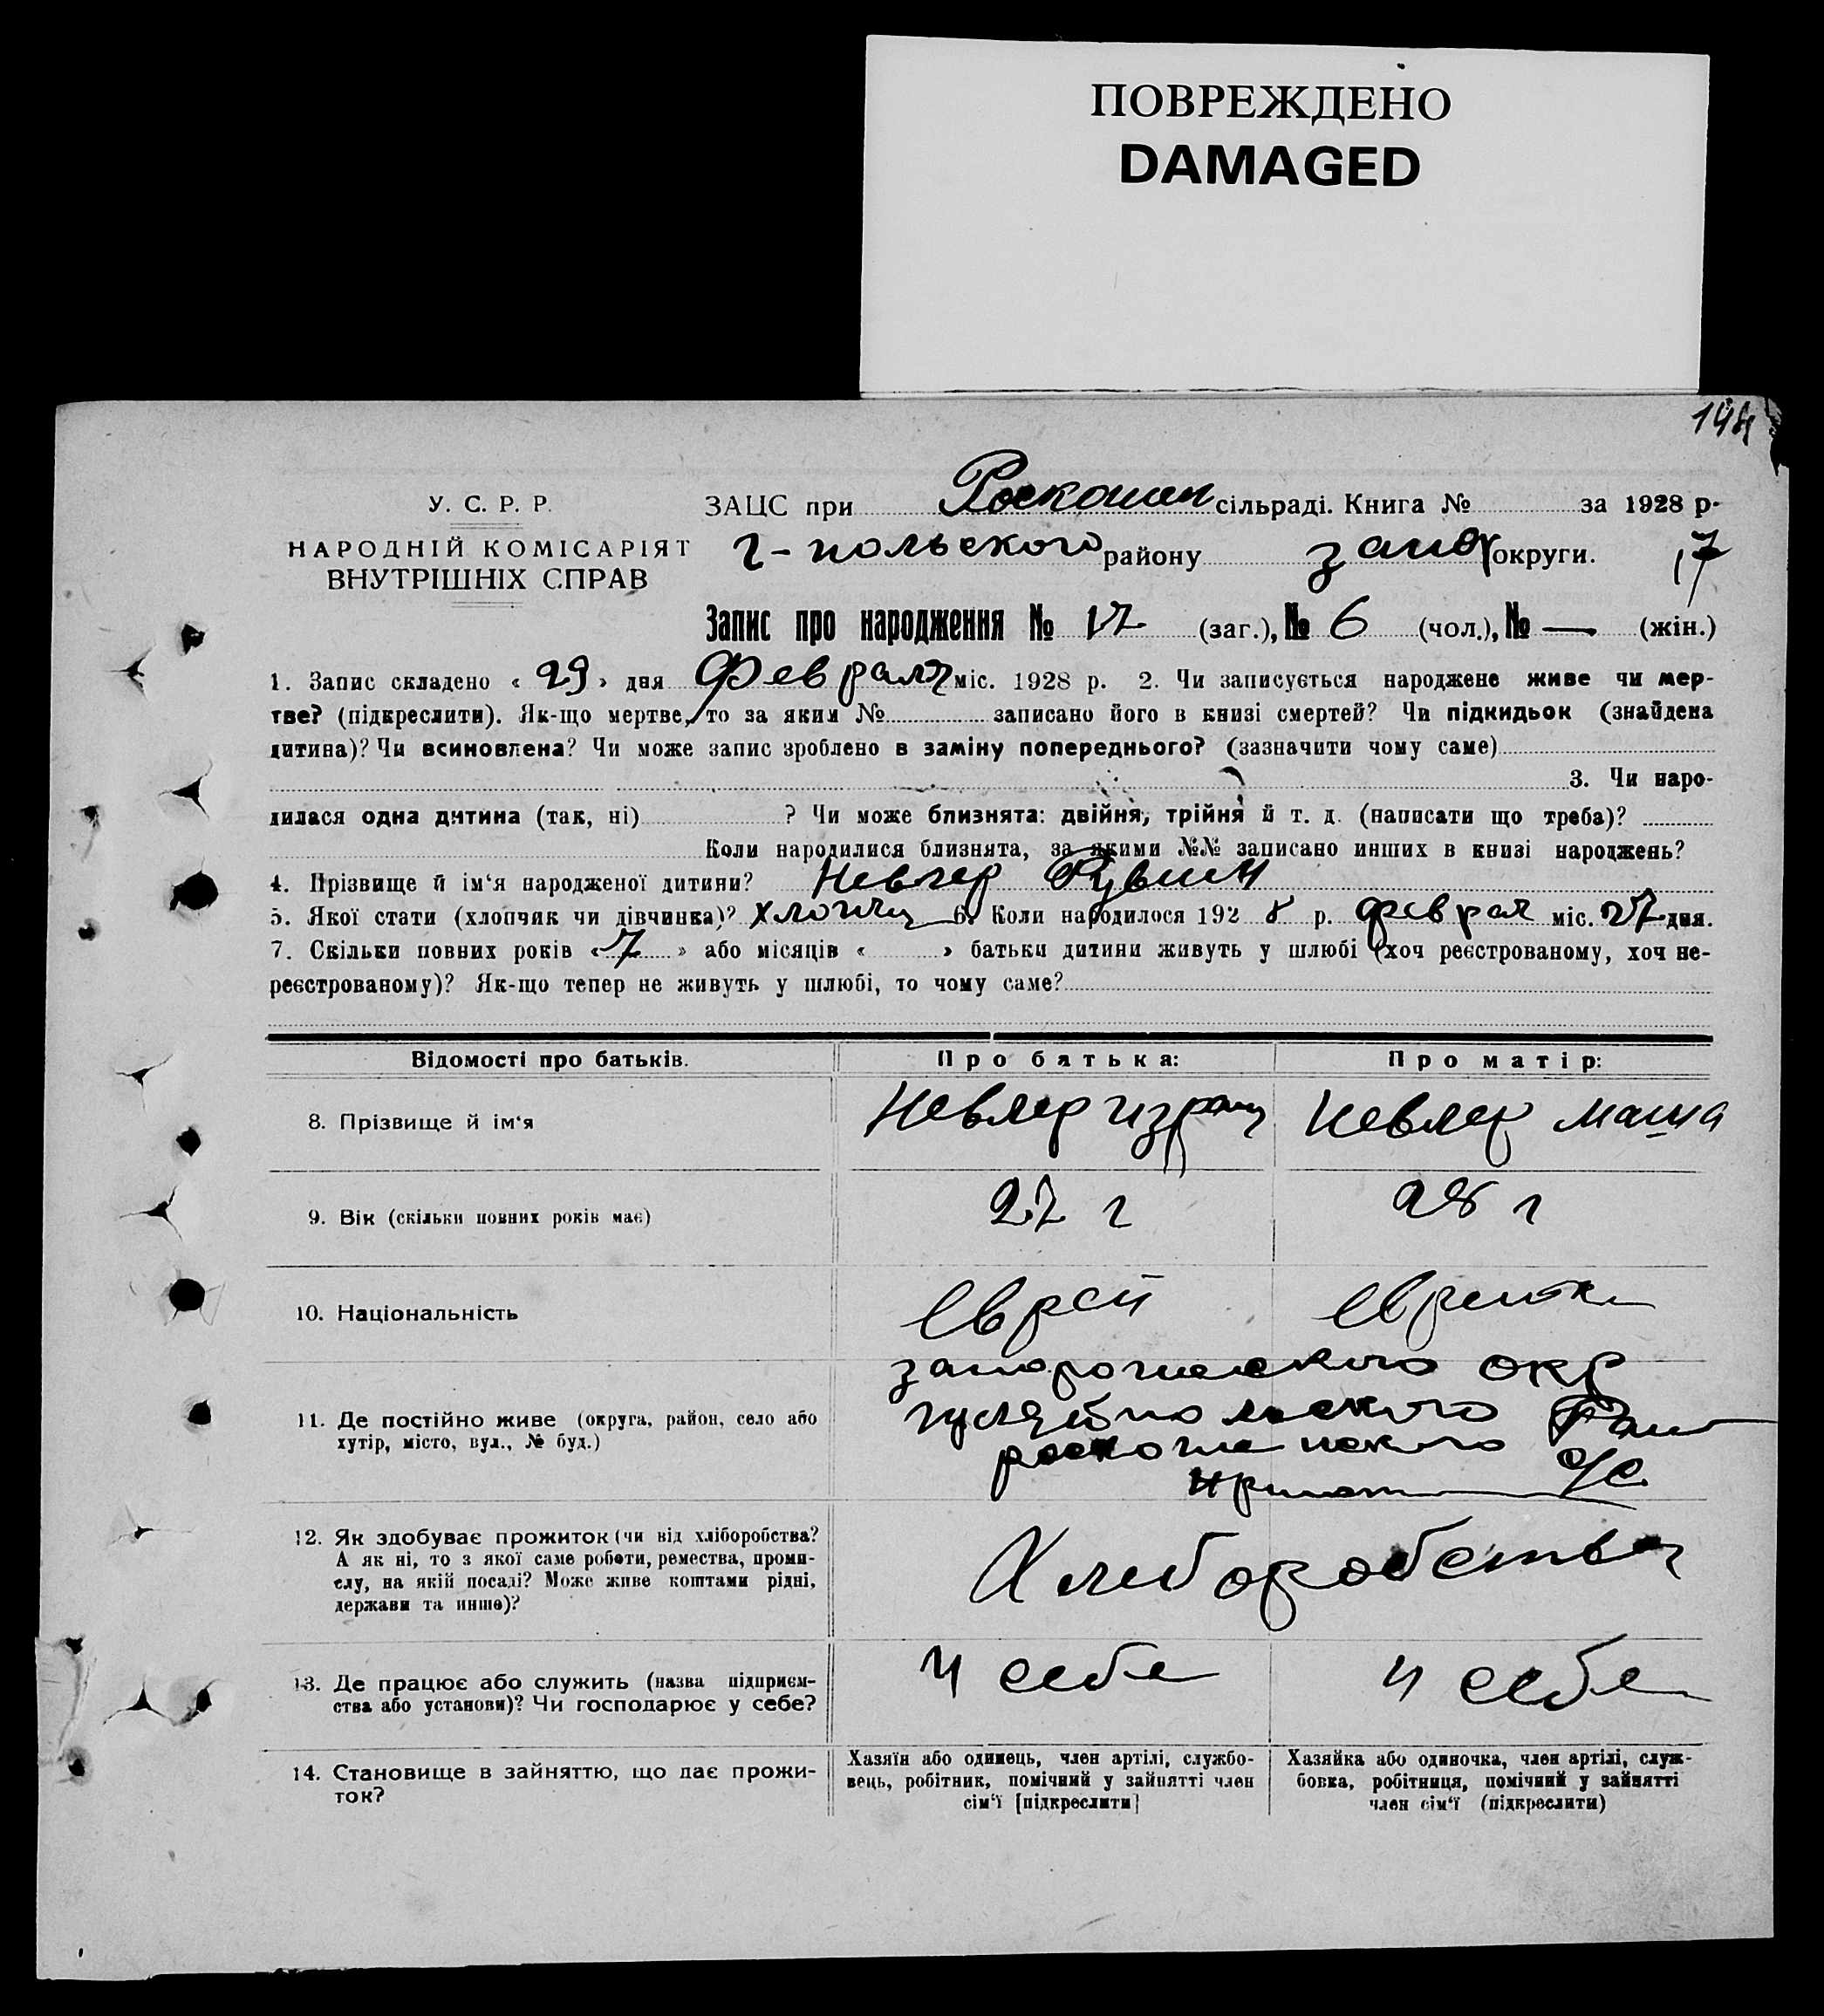 ПОВРЕЖДЕНО
DAMAGED
У. С. Р. Р.
НАРОДНІЙ КОМІСАРІЯТ
ВНУТРІШНІХ СПРАВ
ЗАЦС при Роскошен сільраді. Книга № за 1928 р.
г-польского району запор округи. 17
Запис про народження № 17 (заг.), № 6 (чол.), № — (жін.)
1. Запис складено « 29 » дня Февраля міс. 1928 р. 2. Чи записується народжене живе чи мер-
тве? (підкреслити). Як-що мертве, то за яким № записано його в книзі смертей? Чи підкидьок (знайдена
дитина)? Чи всиновлена? Чи може запис зроблено в заміну попереднього? (зазначити чому саме)
3. Чи наро-
дилася одна дитина (так, ні) ? Чи може близнята: двійня, трійня й т. д. (написати що треба)?
Коли народилися близнята, за якими №№ записано инших в книзі народжень?
4. Прізвище й ім‘я народженої дитини? Невлер Рувин
5. Якої стати (хлопчяк чи дівчинка)? 6. Коли народилося 192 8 р. феврал міс. 27 дня.
7. Скільки повних років « 7 » або місяців « » батьки дитини живуть у шлюбі (хоч реєстрованому, хоч не-
реєстрованому)? Як-що тепер не живуть у шлюбі, то чому саме?
Відомості про батьків. Про батька: Про матір:
8. Прізвище й ім‘я Невлер Невлер Маша
9. Вік (скільки повних років має) 27 г 28 г
10. Національність Еврей Еврейка
запорожского окр
гуляйпольского Рай
роскошенского
11. Де постійно живе (округа, район, село або
хутір, місто, вул., № буд.)
с/с
12. Як здобуває прожиток (чи від хліборобства?
А як ні, то з якої саме роботи, ремества, проми-
слу, на якій посаді? Може живе коштами рідні,
держави та инше)?
Хлиборобства
13. Де працює або служить (назва підприєм-
ства або установи)? Чи господарює у себе?
у себе у себе
14. Становище в зайняттю, що дає прожи-
ток?
Хазяїн або одинець, член артілі, службо-
вець, робітник, помічний у зайнятті член
сім‘ї [підкреслити]
Хазяйка або одиночка, член артілі, служ-
бовка, робітниця, помічний у зайнятті
член сім‘ї (підкреслити)